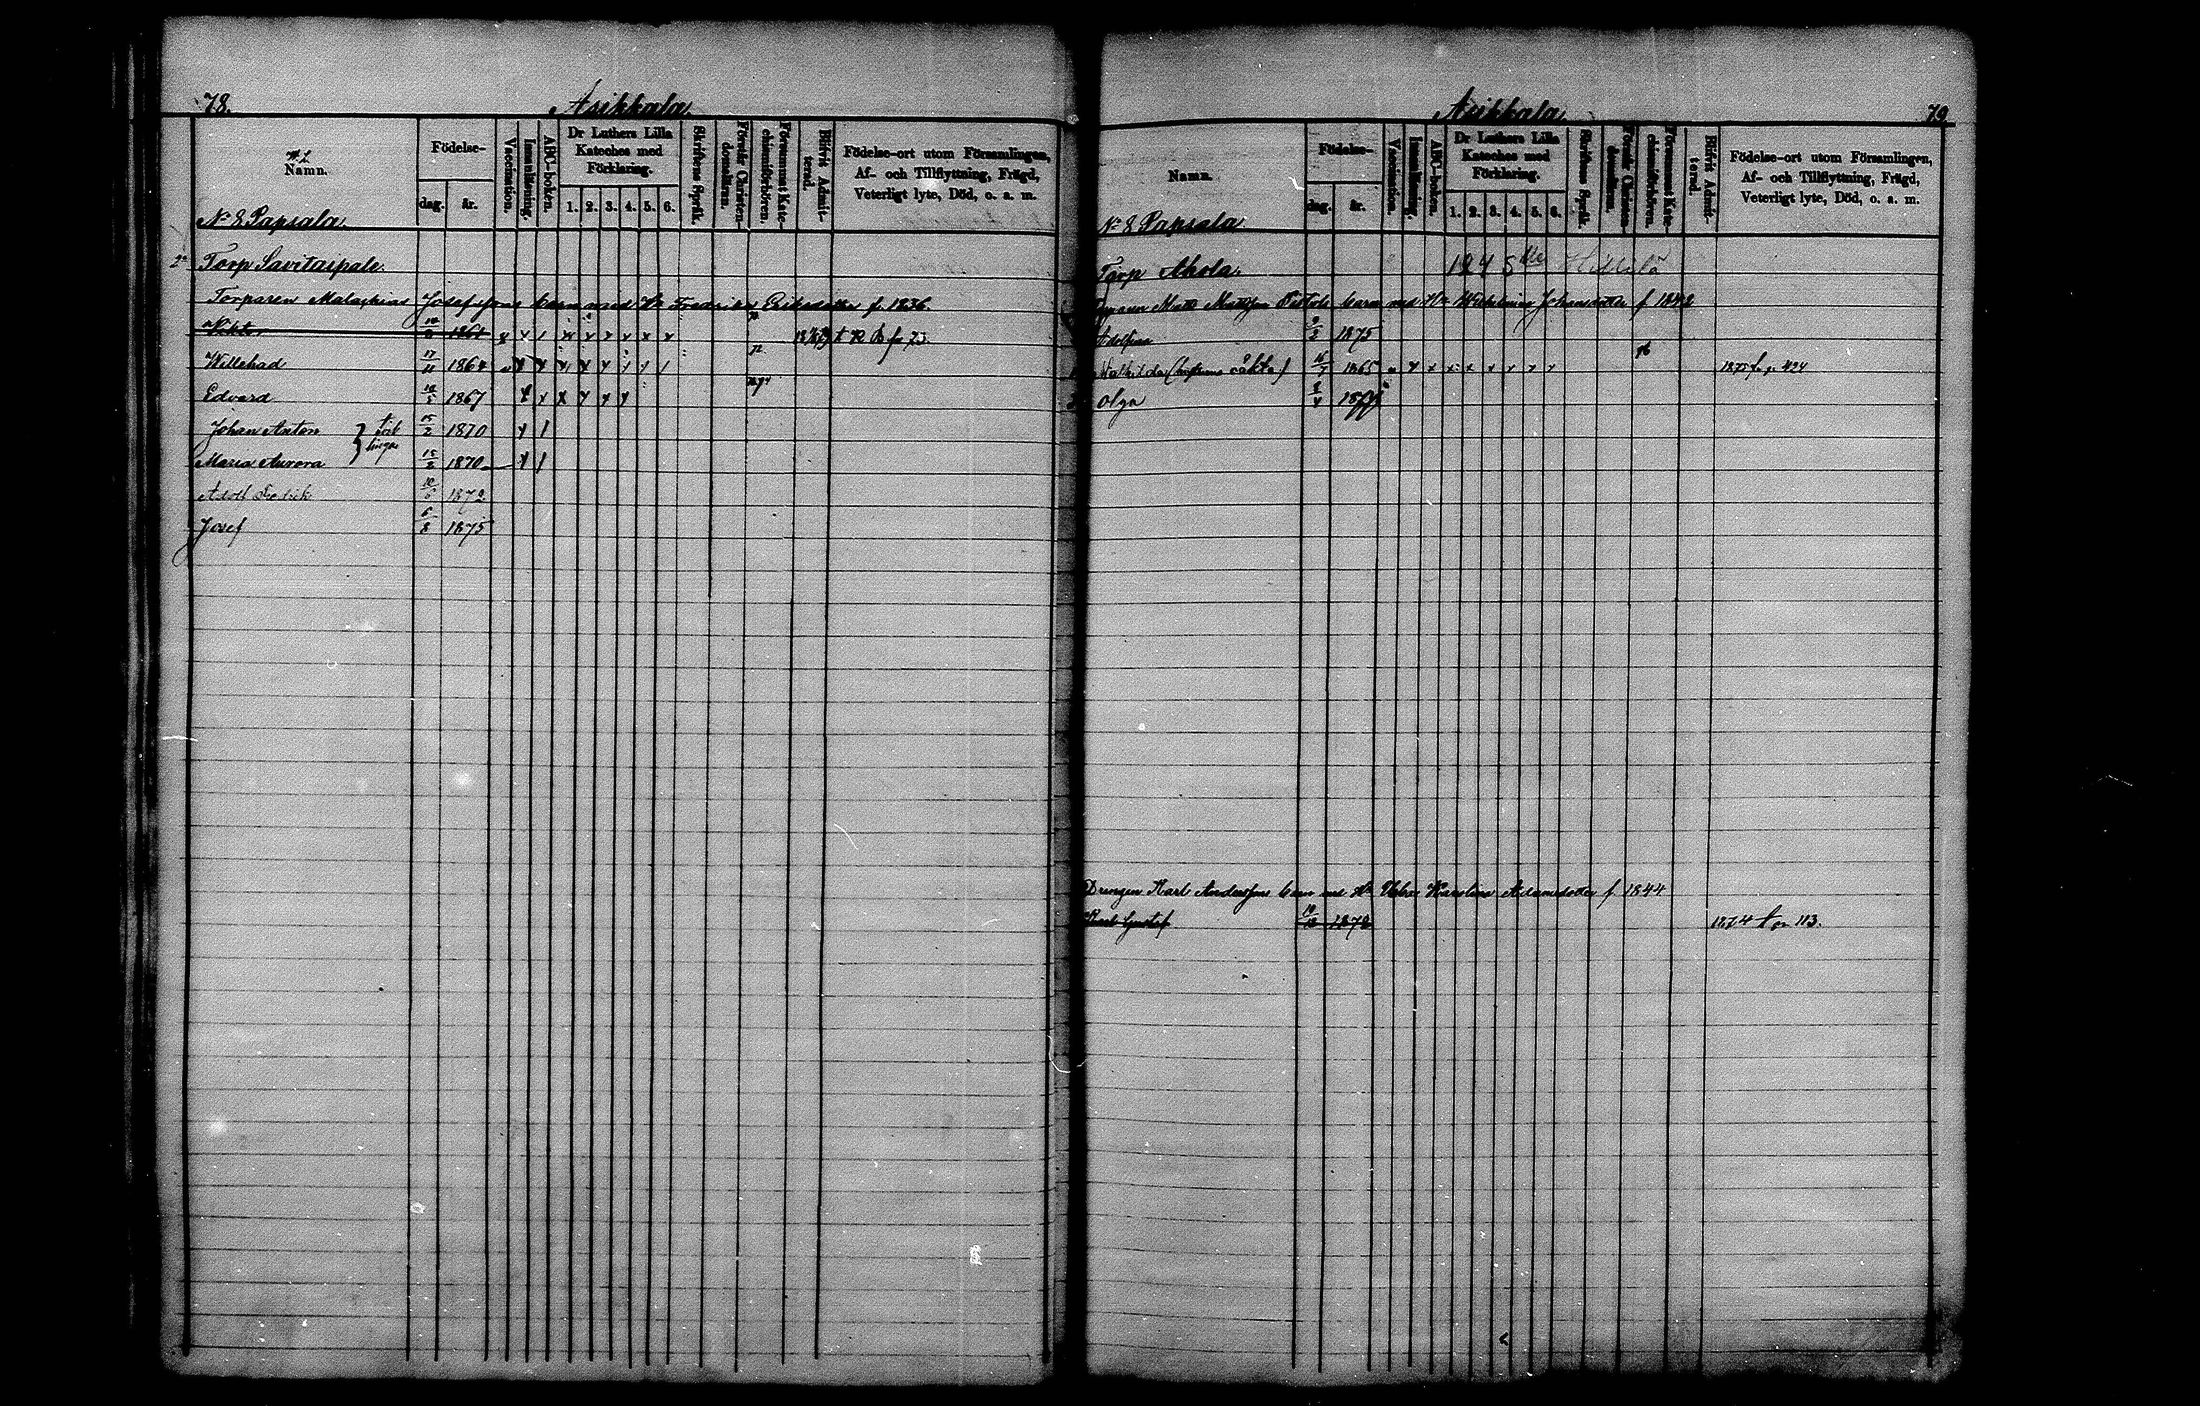 78.
Asikkala.
Namn.
Födelse-
dag. år.
Vaccination.
Innanläsning.
ABC-boken.
Dr Luthers Lilla Kateches med Förklaring.
1. 2. 3. 4. 5. 6.
Skriftens Språk.
Förstår Christendomslärn.
Försummat Katechismiförhören.
Blifvit Admitterad.
Födelse-ort utom Församlingen, Af- och Tillflyttning, Frägd, Veterligt lyte, Död, o. a. m.
No 8 Papsala.
Torp Savitaipale.
Torparen Malachias Josefssons barn med H. Fredrika Eriksdotter f. 1836.
Viktor 1861
Willehad 17/11 1864
Edvard 1867
Johan Anton 15/2 1870
Maria Aurora 15/2 1870
Adolf Fredrik 10/6 1872
Josef 6/8 1875
Asikkala
79
Namn.
Födelse-
dag. år.
Vaccination.
Innanläsning.
ABC-boken.
Dr Luthers Lilla Kateches med Förklaring.
1. 2. 3. 4. 5. 6.
Skriftens Språk.
Förstår Christendomslärn.
Försummat Katechismiförhören.
Blifvit Admitterad.
Födelse-ort utom Församlingen, Af- och Tillflyttning, Frägd, Veterligt lyte, Död, o. a. m.
No 8 Papsala.
Torp Ahola.
Matts barn med Wilhelmina Johansdotter f 1842
Adolfina 9/2 1875
Mathilda (hustruns oäkta) 16/7 1865 1875 fr. p. 424
Olga
Drengen Karl Anderssons barn med Karolina Adamsdotter f 1844
Karl Gustaf 1872 1874 t p. 113.